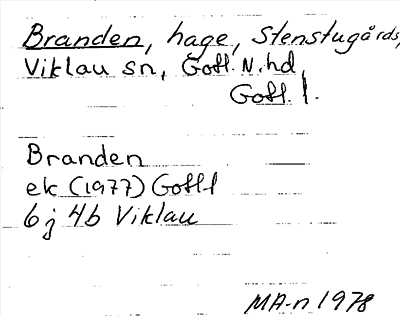 Branden, hage, Stenstugårds,
Viklau sn, Gotl. N. hd,
Gotl. l.
Branden
ek (1977) Gotl l
6j 4b Viklau
MA-n 1978